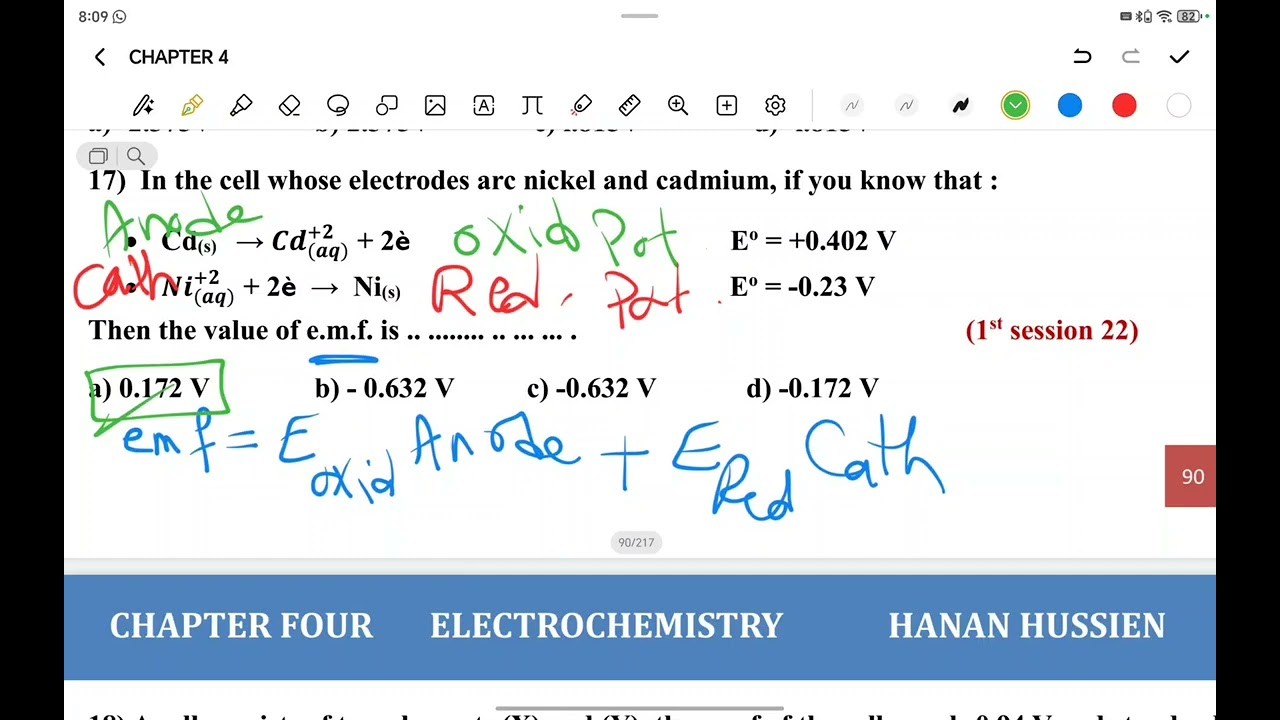 8:09
82
CHAPTER 4
17) In the cell whose electrodes arc nickel and cadmium, if you know that :
Anode
• Cd(s) → Cd+2(aq) + 2è oxid Pot E° = +0.402 V
Cath
Ni+2(aq) + 2è → Ni(s) Red. Pot. E° = -0.23 V
Then the value of e.m.f. is .. ........ .. ... ... . (1st session 22)
a) 0.172 V b) - 0.632 V c) -0.632 V d) -0.172 V
emf = E oxid Anode + E Red Cath
90
90/217
CHAPTER FOUR ELECTROCHEMISTRY HANAN HUSSIEN